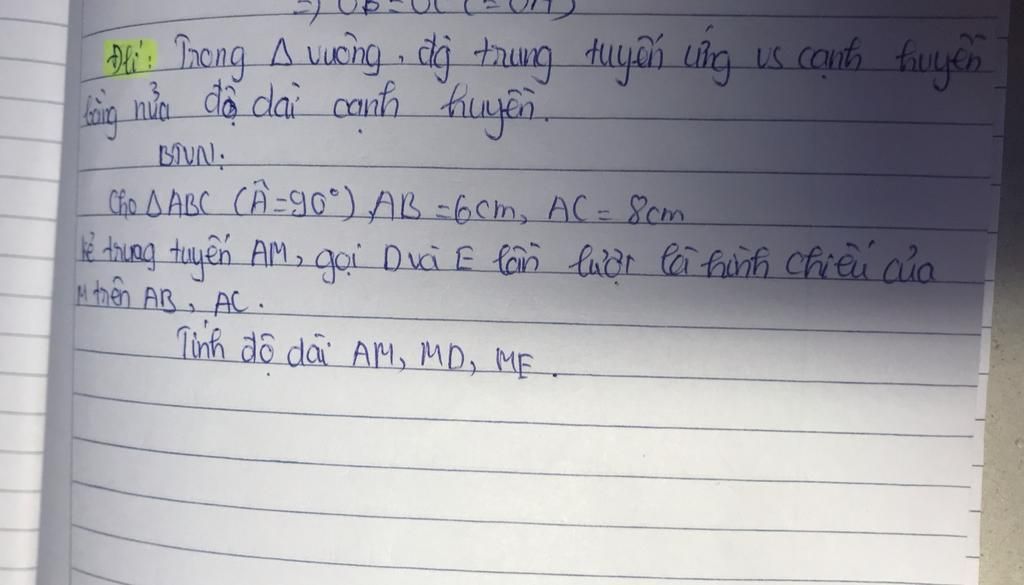 =) OB = OC (= OA)
Đlí: Trong Δ vuông, đg trung tuyến ứng vs cạnh huyền
bằng nửa độ dài cạnh huyền.
BTVN:
Cho ΔABC (Â=90°), AB = 6cm, AC = 8cm
kẻ trung tuyến AM, gọi D và E lần lượt là hình chiếu của
M trên AB, AC.
Tính độ dài AM, MD, ME.